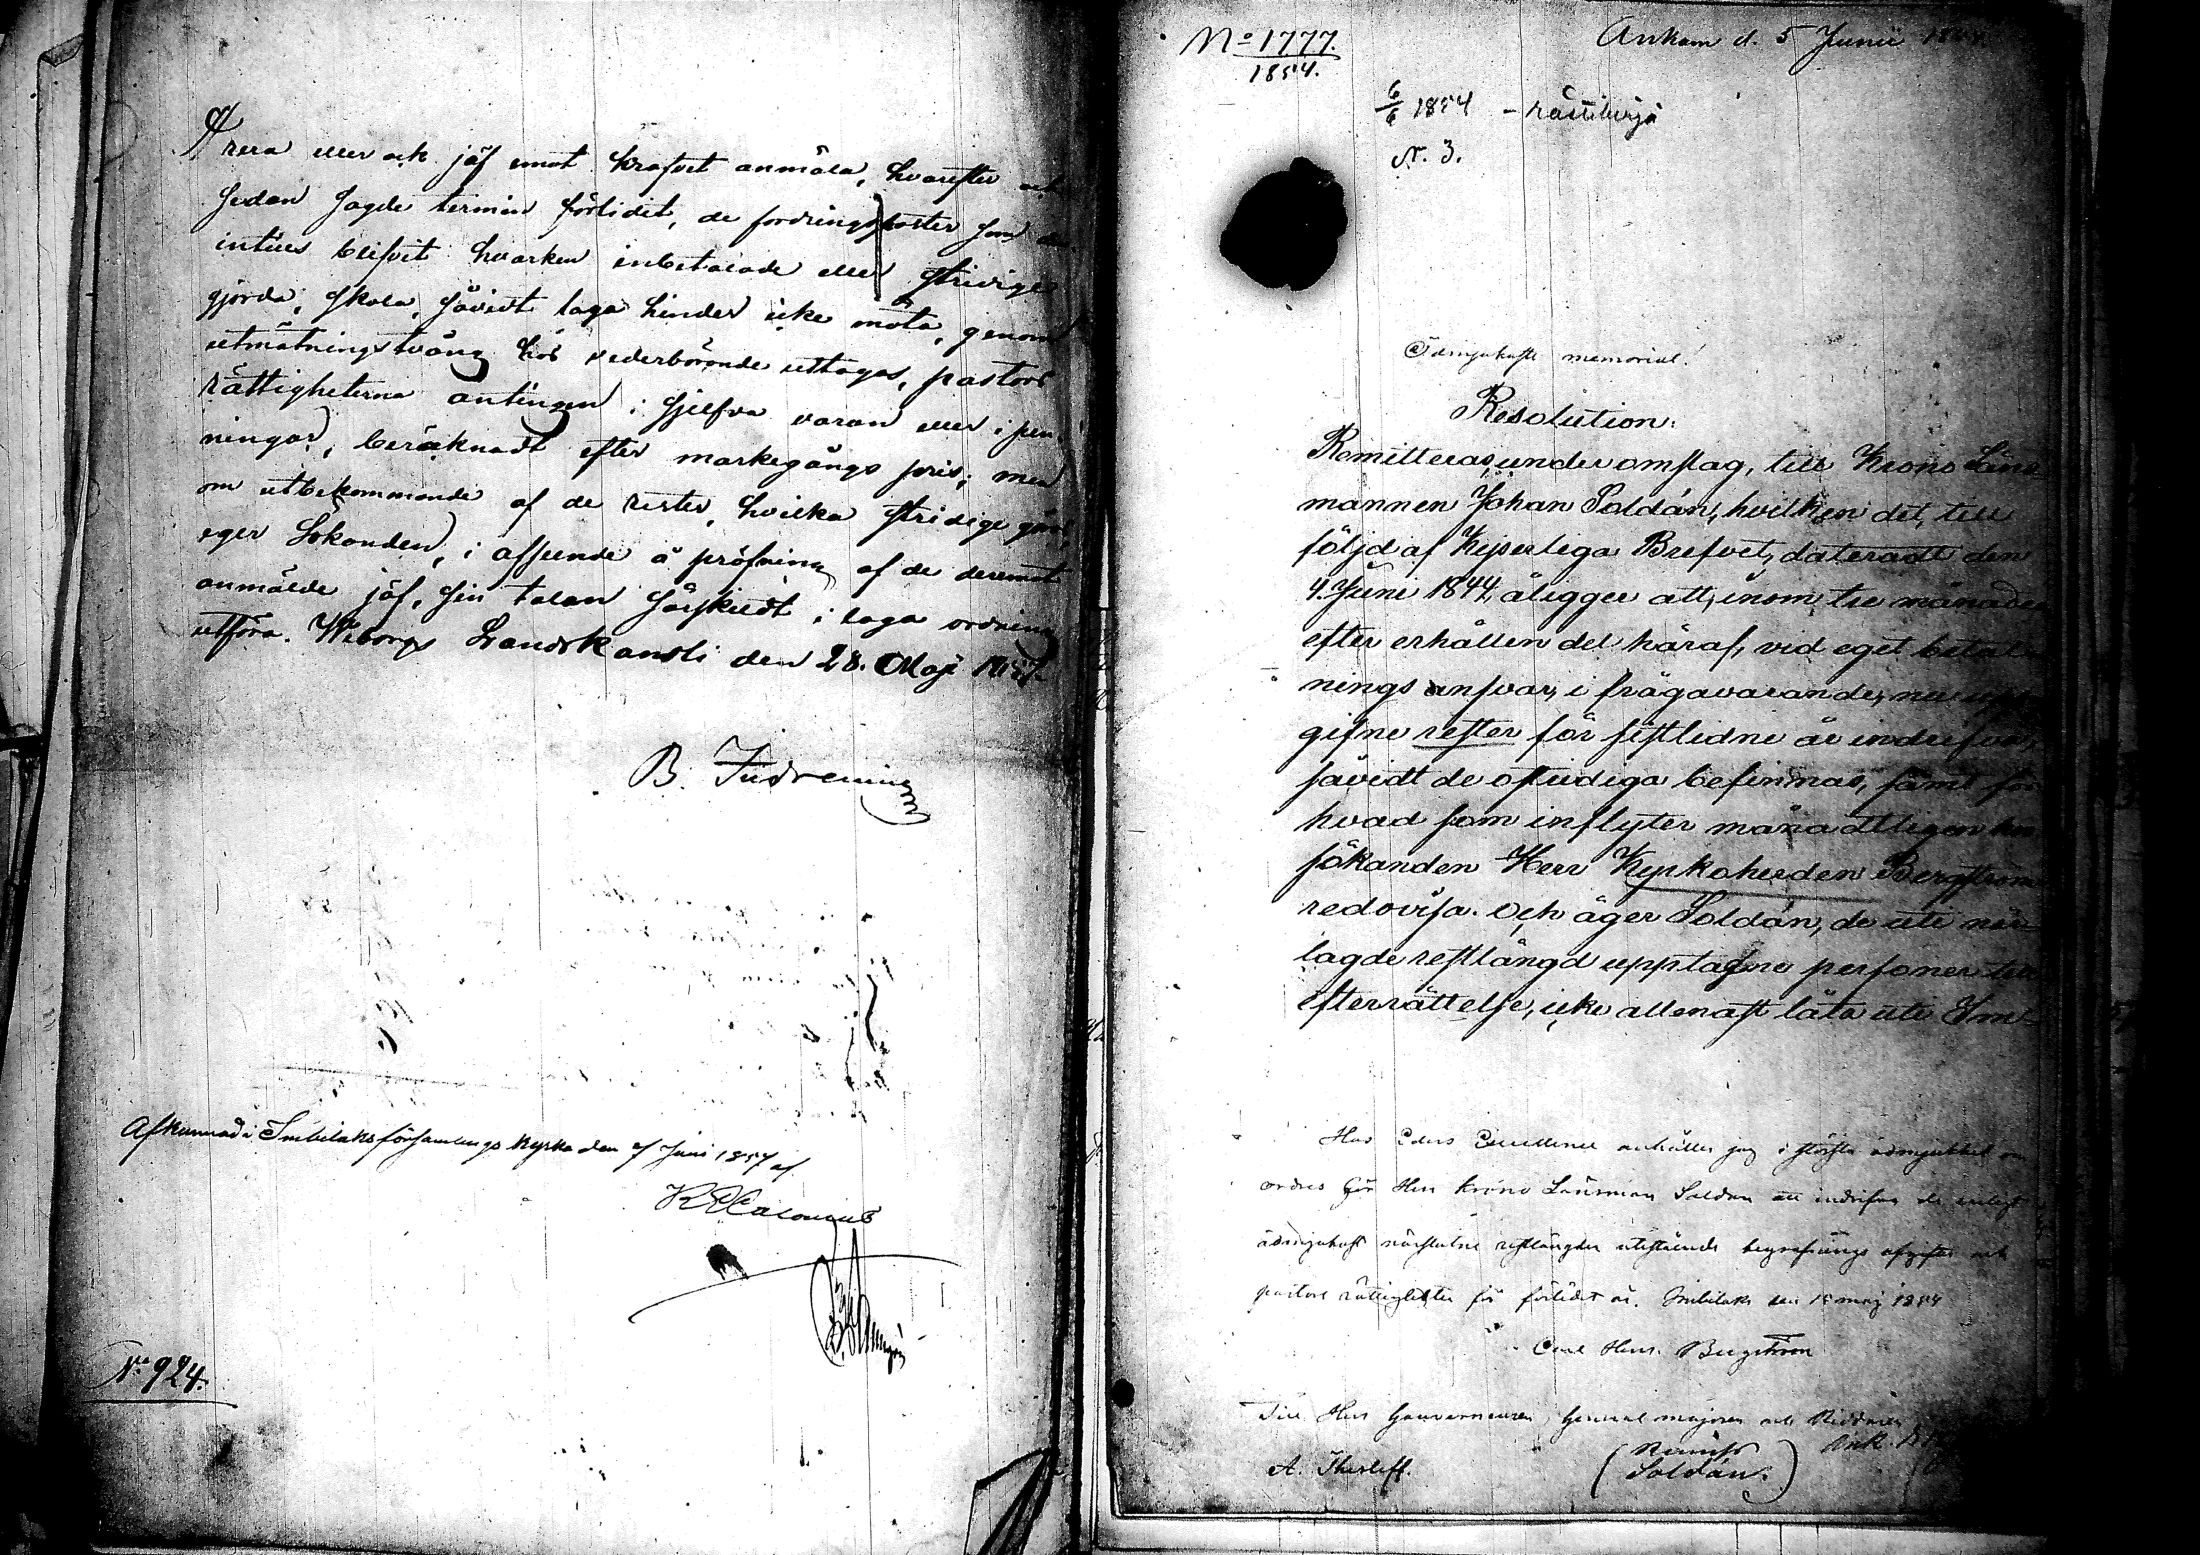 rera eller ock jäf emot krafvet anmäla, hvarefter och
sedan sagde termin förlidit, de fordringsposter som
inties blifvit hvarken inbetalade eller stridige
gjorda, skola, såvidt laga hinder icke möta, genom
utmätningstvång hos vederbörande uttagas, pastors
rättigheterna antingen i sjelfva varan eller i pen-
ningar, beräknadt efter markegångs pris; men
om utbekommande af de rester, hvilka stridige
eger Sökanden, i afseende å pröfning af de deremot
anmälde jäf, sin talan särskildt i laga ordning
utföra. Wiborgs Landskansli den 28. Maji
B. Indrenius
Afkunnad i Imbilaks församlings kyrka den 7 Juni 1857 af
No 924.
No 1777.
1854.
Ankom d. 5 Junii
6/6 1854 – rästilurja
N. 3.
Ödmjukaste memorial.
Resolution:
Remitteras, under omslag, till Krono Läns-
mannen Johan Soldán, hvilken det, till
följd af Kejserliga Brefvet, dateradt den
4 Juni 1844, åligger att, inom tre månader
efter erhållen del häraf, vid eget betal-
nings ansvar, i frågavarande,
gifne rester för sistlidne år indrifva,
såvidt de ostridiga befinnas, samt för
hvad som inflyter månadtligen hos
sökanden Herr Kyrkoherden Bergström
redovisa. Och äger Soldán, de uti när-
lagde restlängd upptagne personer till
efterrättelse, icke allenast låta uti Im-
Hos Eders Excellence anhåller jag i största ödmjukhet om
ordres för Herr Krono Länsman Soldan att indrifva de enligt
ödmjukast närslutne restlängder utestående begrafnings afgifter och
pastors rättigheter för förlidet år. Imbilaks den 15 maj 1854
Carl Henr. Bergström
Till Herr Gouverneuren, General majoren och Riddaren
A. Thesleff.
(
Soldán.)
Ank.